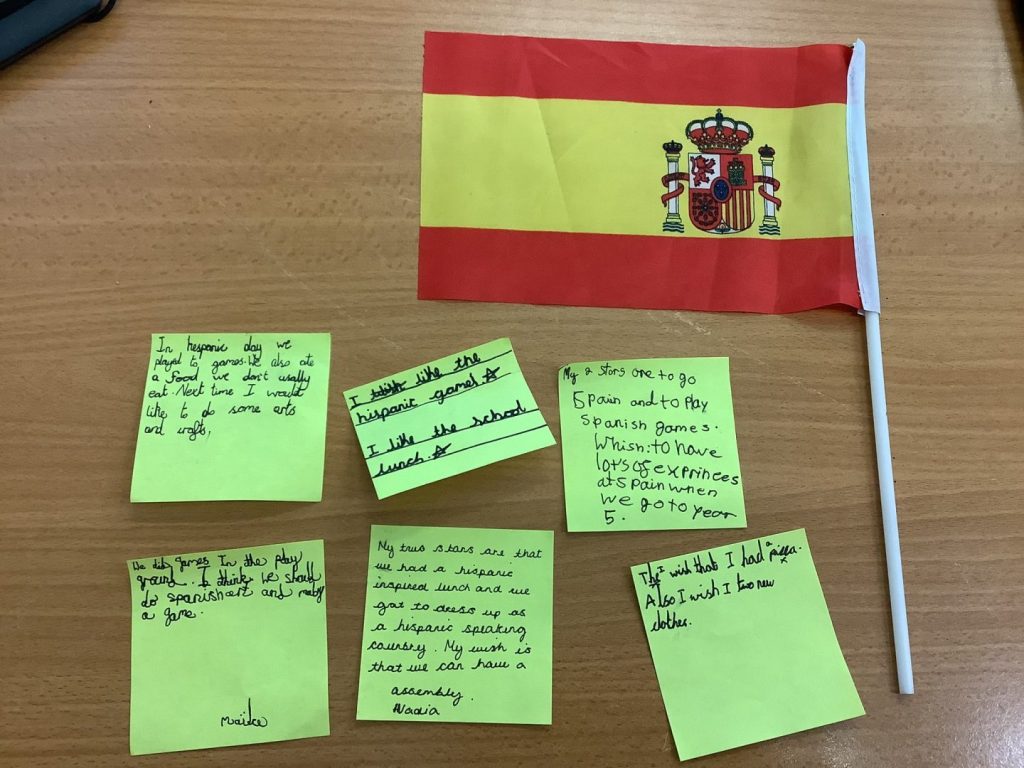 In hespanic day we
played to games. We also ate
a food we don't usally
eat. Next time I would
like to do some arts
and crafts,
I like the
hispanic games ☆
I like the school
lunch. ☆
My 2 stars are to go
Spain and to play
Spanish games.
Whish: to have
lots of exprinces
at Spain when
we go to year
5.
We did games In the play
ground. I think we should
do spanish art and
a game.
My two stars are that
we had a hispanic
inspired lunch and we
got to dress up as
a hispanic speaking
country. My wish is
that we can have a
assembly.
Nadia
I wish that I had a pizza.
Also I wish I two new
clothes.